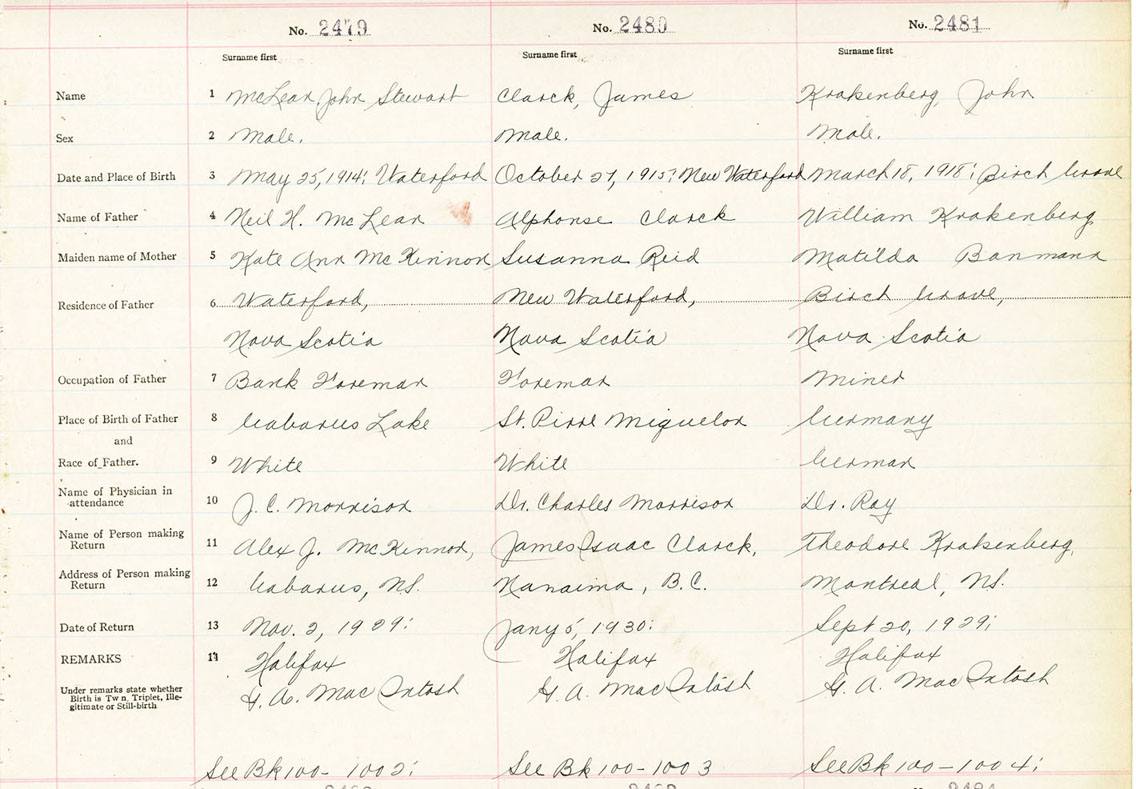 No. 2479 No. 2480 No. 2481
Surname first Surname first Surname first
Name 1 McLean, John Stewart Clarck, James Krakenberg, John
Sex 2 Male. Male. Male.
Date and Place of Birth 3 May 25, 1914: Waterford October 27, 1915: New Waterford March 18, 1918: Birch Grove
Name of Father 4 Neil H. McLean Alphonse Clarck William Krakenberg
Maiden name of Mother 5 Kate Ann McKinnon Susanna Reid Matilda Banmann
Residence of Father 6 Waterford, New Waterford, Birch Grove,
Nova Scotia Nova Scotia Nova Scotia
Occupation of Father 7 Bank Foreman Foreman Miner
Place of Birth of Father 8 Gabarus Lake St. Pirre Miguelon Germany
and
Race of Father. 9 White White German
Name of Physician in
attendance 10 J. C. Morrison Dr. Charles Morrison Dr. Ray
Name of Person making
Return 11 Alex J. McKinnon, James Isaac Clarck, Theodore Krakenberg,
Address of Person making
Return 12 Gabarus, NS. Nanaimo, B.C. Montreal, NS.
Date of Return 13 Nov. 2, 1929: Jany 5, 1930: Sept 20, 1929:
REMARKS 14 Halifax Halifax Halifax
Under remarks state whether
Birth is Twn, Triplet, Ille-
gitimate or Still-birth
G. A. MacIntosh G. A. MacIntosh G. A. MacIntosh
See Bk 100 - 1002: See Bk 100 - 1003 See Bk 100 - 1004: